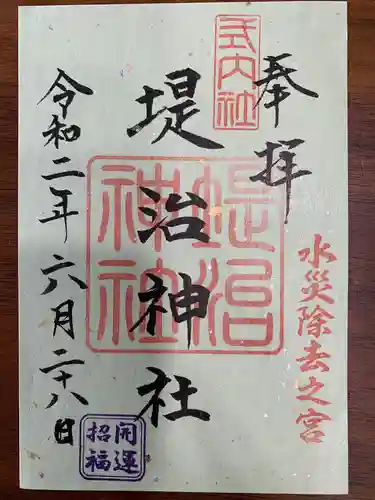 式内社
奉拝
水災除去之宮
堤治神社
堤治神社
令和二年六月二十八日
開運
招福